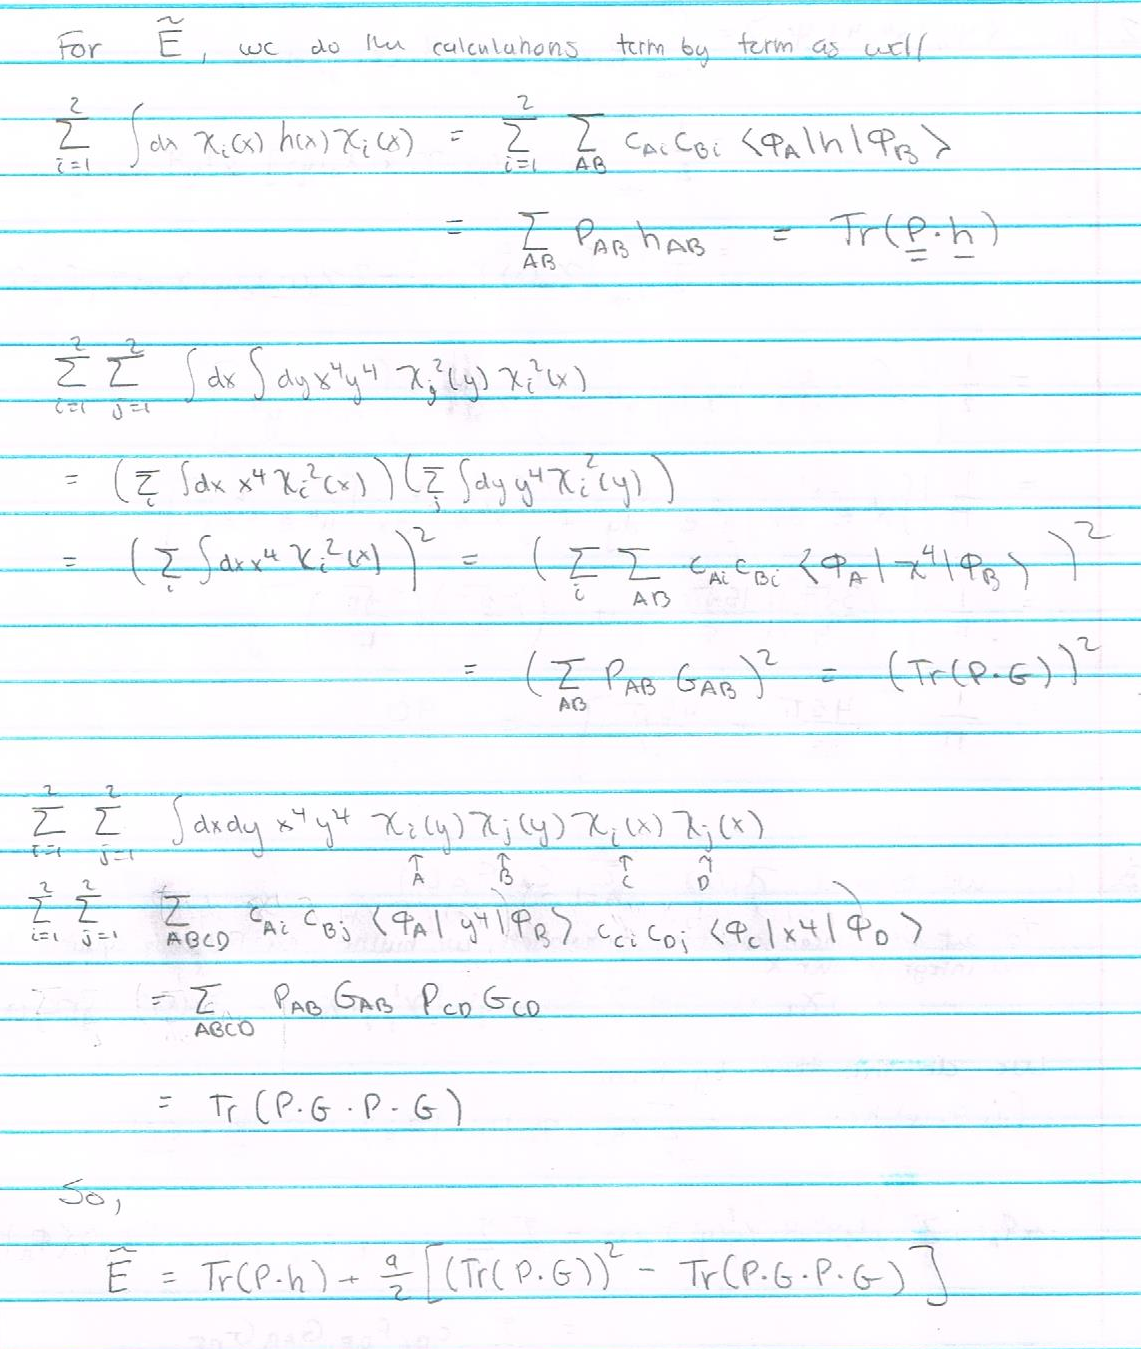 For Ẽ, we do the calculations term by term as well
2∑i=1 ∫dx χi(x) h(x) χi(x) = 2∑i=1 ∑AB cAi cBi ⟨φA|h|φB⟩
= ∑AB PAB hAB = Tr(P·h)
2∑i=1 2∑j=1 ∫dx ∫dy x⁴y⁴ χj²(y) χi²(x)
= (∑i ∫dx x⁴ χi²(x)) (∑j ∫dy y⁴ χi²(y))
= (∑i ∫dx x⁴ χi²(x))² = (∑i ∑AB cAi cBi ⟨φA|x⁴|φB⟩)²
= (∑AB PAB GAB)² = (Tr(P·G))²
2∑i=1 2∑j=1 ∫dxdy x⁴y⁴ χi(y) χj(y) χi(x) χj(x)
↑A ↑B ↑C ↑D
2∑i=1 2∑j=1 ∑ABCD cAi cBj ⟨φA|y⁴|φB⟩ cCi cDj ⟨φC|x⁴|φD⟩
= ∑ABCD PAB GAB PCD GCD
= Tr(P·G·P·G)
So,
Ẽ = Tr(P·h) + a/2 [(Tr(P·G))² - Tr(P·G·P·G)]